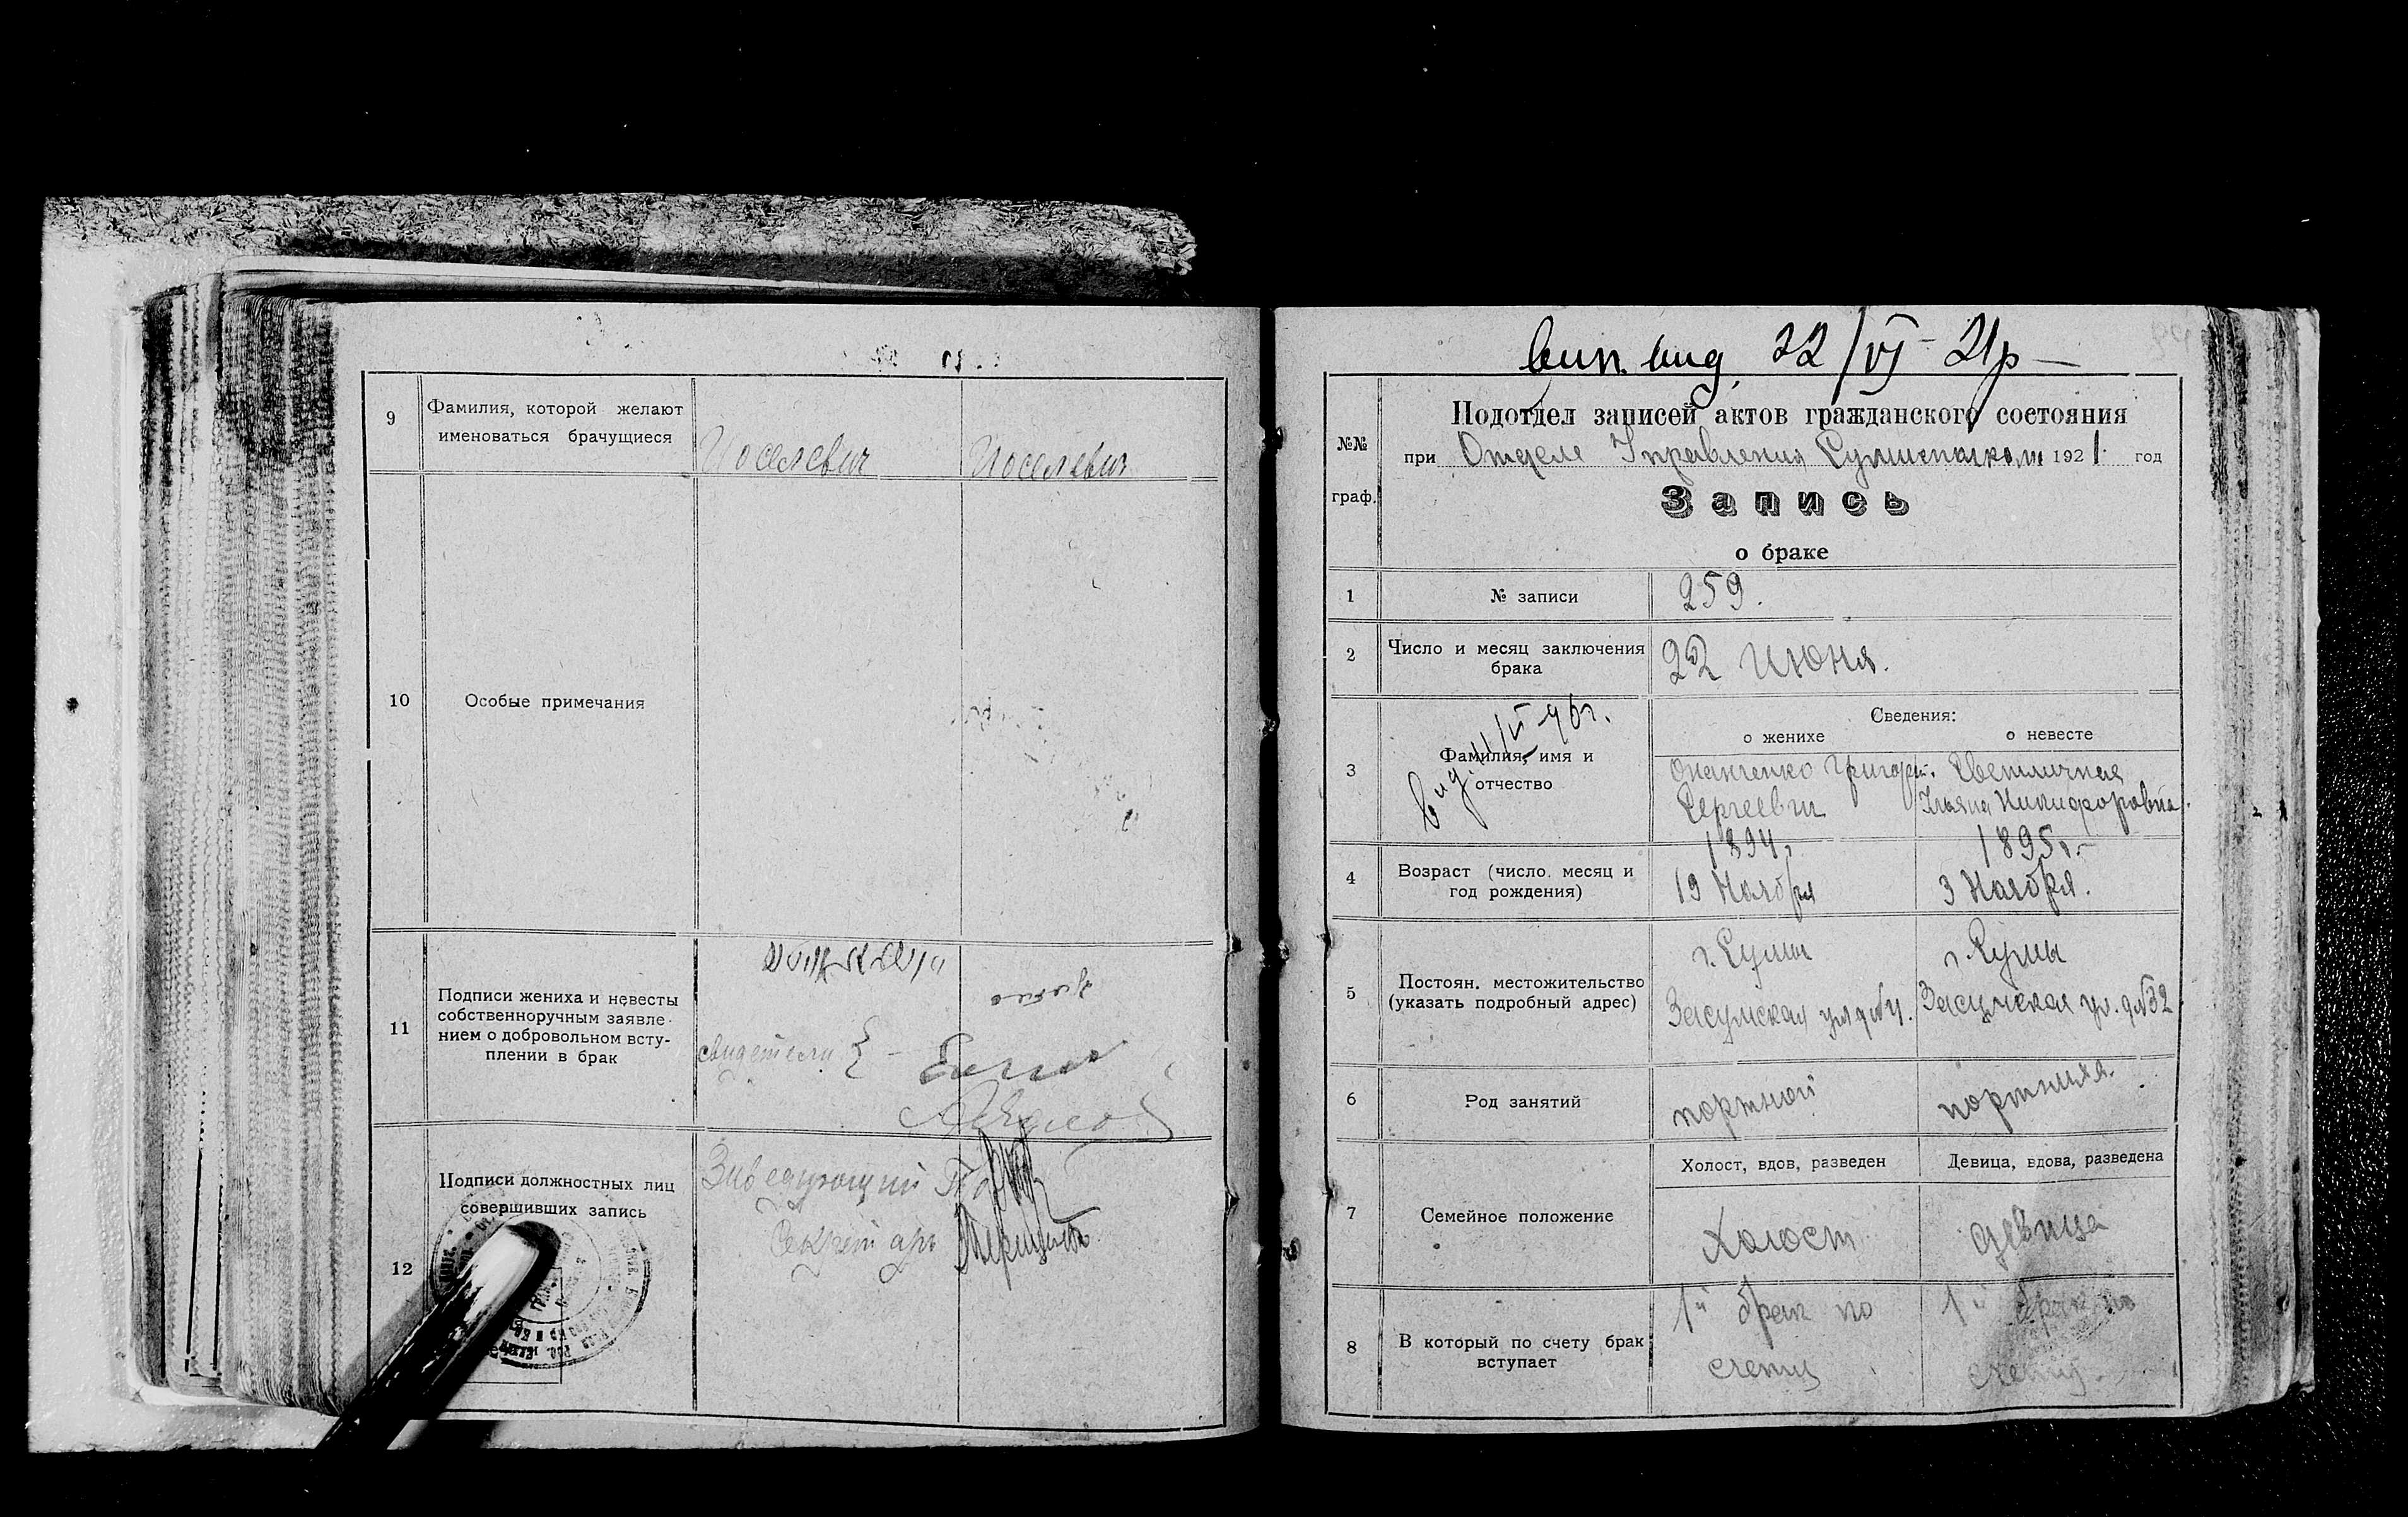 9
Фамилия, которой желают
именоваться брачущиеся
Иоселевич
Иоселевич
10
Особые примечания
11
Подписи жениха и невесты
собственноручным заявле-
нием о добровольном всту-
плении в брак
свидетели
12
Подписи должностных лиц
совершивших запись
Заведующий
Секретарь
вип. вид. 22/VI - 21р
№№
граф.
Подотдел записей актов гражданского состояния
при Отделе Управления 1921 год
Запись
о браке
1
№ записи
259.
2
Число и месяц заключения
брака
22 Июня.
3
Фамилия, имя и
отчество
Сведения:
о женихе
о невесте
Онанченко Григорий
Сергеевич
Цветличная
Никифоровна
4
Возраст (число, месяц и
год рождения)
1894 г.
19 Ноября
1895 г.
3 Ноября.
5
Постоян. местожительство
(указать подробный адрес)
г. Сумы
Засумская
г. Сумы
Засумская ул. д №32
6
Род занятий
портной
портниха.
7
Семейное положение
Холост, вдов, разведен
Девица, вдова, разведена
Холост
девица
8
В который по счету брак
вступает
1й брак по
счету
1й брак по
счету.